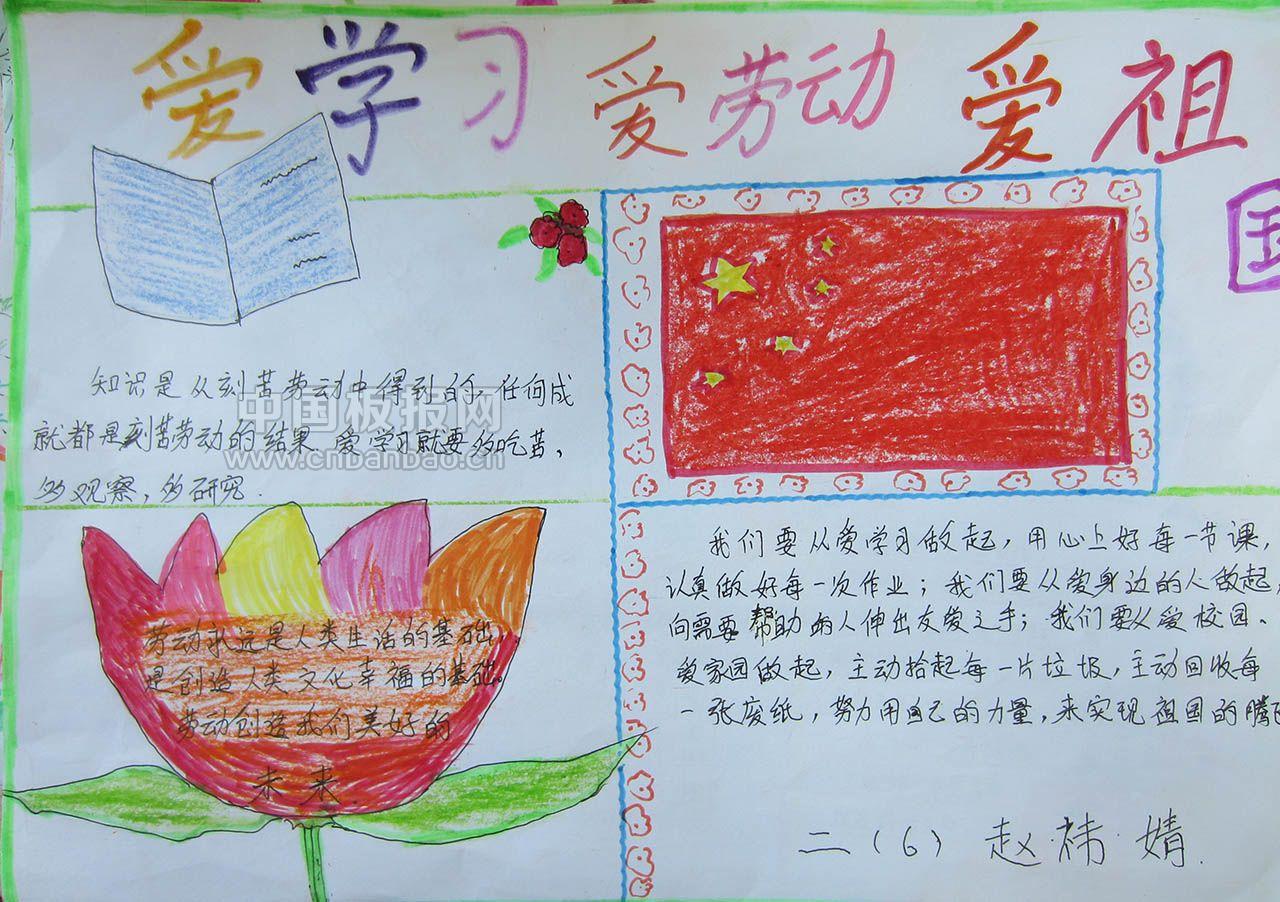 爱学习 爱劳动 爱祖
国
知识是从刻苦劳动中得到的，任何成
就都是刻苦劳动的结果．爱学习就要多吃苦、
多观察，多研究．
中国板报网
www.cnbanbao.cn
劳动永远是人类生活的基础，
是创造人类文化幸福的基础。
劳动创造我们美好的
未来．
我们要从爱学习做起，用心上好每一节课，
认真做好每一次作业；我们要从爱身边的人做起，
向需要帮助的人伸出友爱之手；我们要从爱校园、
爱家园做起，主动拾起每一片垃圾，主动回收每
一张废纸，努力用自己的力量，来实现祖国的腾
二（6） 赵祎婧．